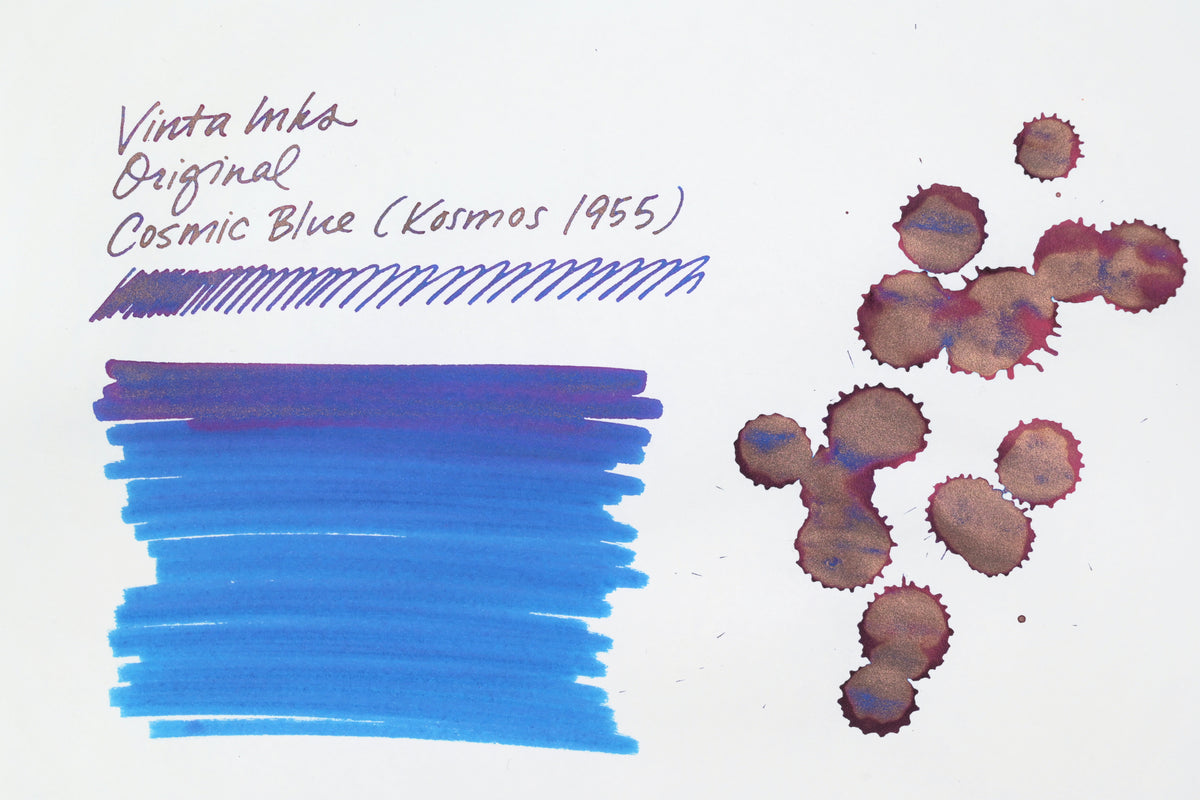 Vinta Inks
Original
Cosmic Blue (Kosmos 1955)